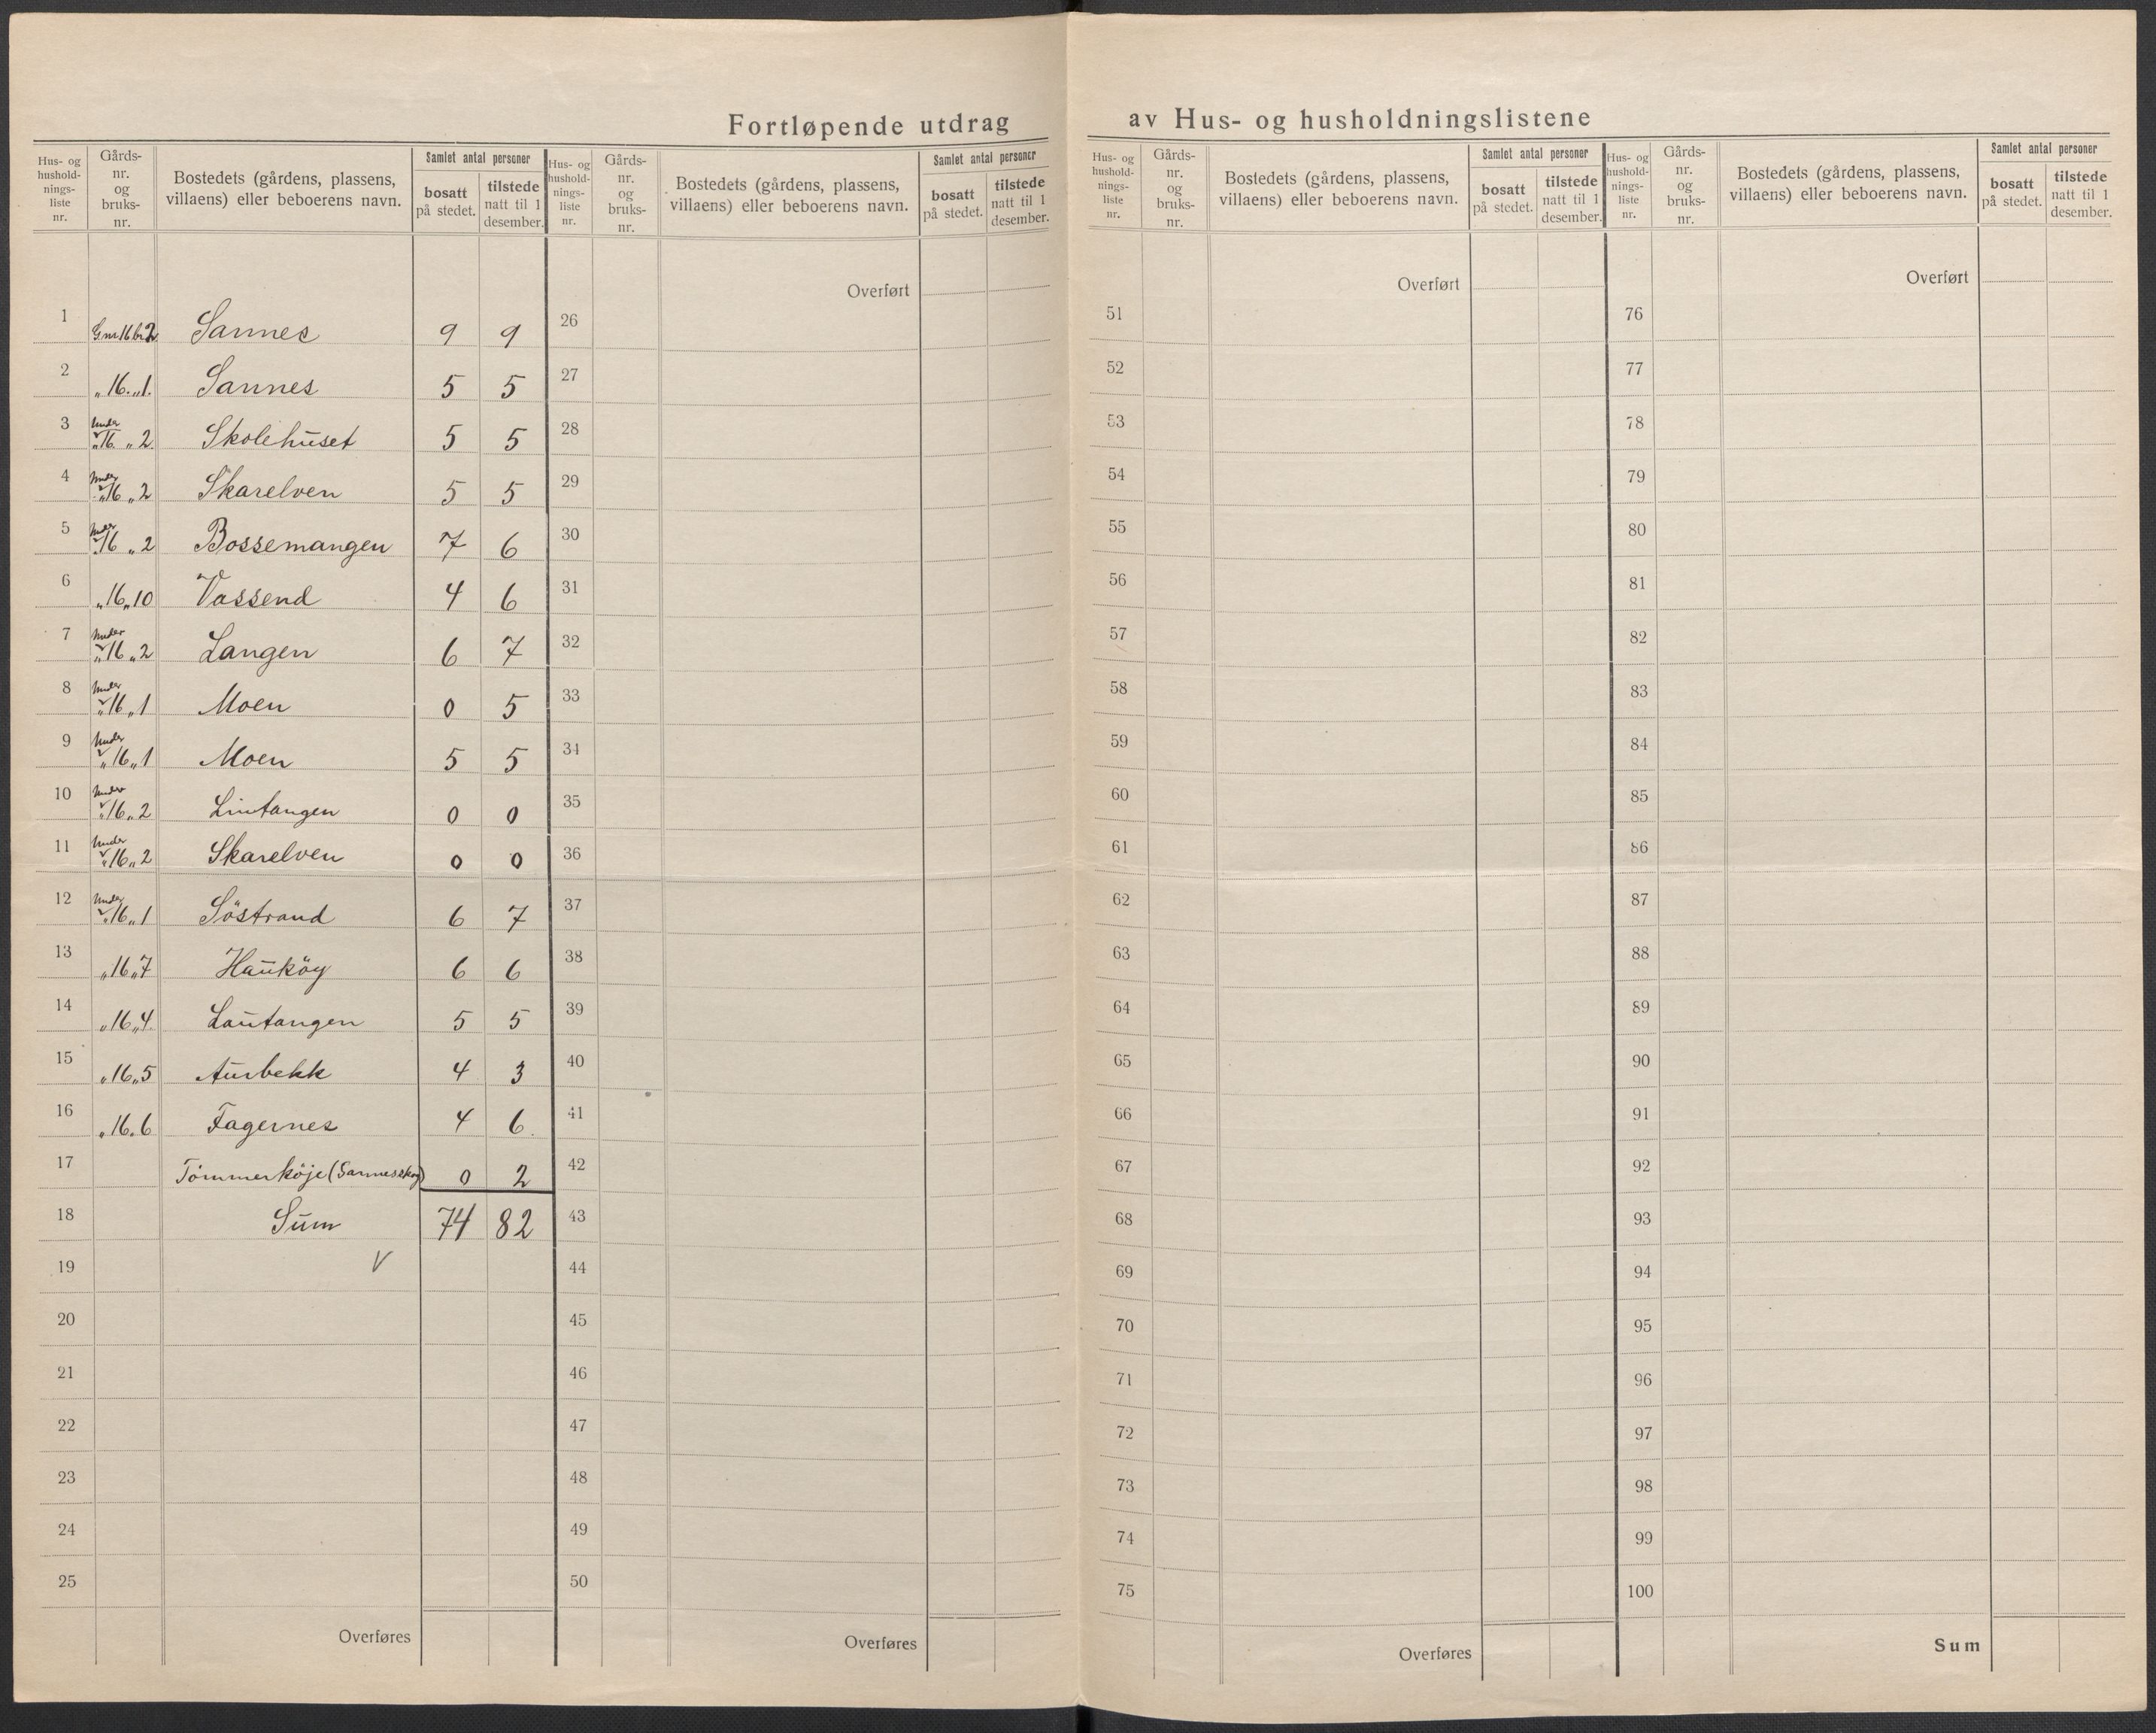 Fortløpende utdrag av Hus- og husholdningslistene
Hus- og hushold- nings- liste nr. | Gårds- nr. og bruks- nr. | Bostedets (gårdens, plassens, villaens) eller beboerens navn. | Samlet antal personer | bosatt på stedet. | tilstede natt til 1 desember.
Hus- og hushold- nings- liste nr. | Gårds- nr. og bruks- nr. | Bostedets (gårdens, plassens, villaens) eller beboerens navn. | Samlet antal personer | bosatt på stedet. | tilstede natt til 1 desember.
Hus- og hushold- nings- liste nr. | Gårds- nr. og bruks- nr. | Bostedets (gårdens, plassens, villaens) eller beboerens navn. | Samlet antal personer | bosatt på stedet. | tilstede natt til 1 desember.
Hus- og hushold- nings- liste nr. | Gårds- nr. og bruks- nr. | Bostedets (gårdens, plassens, villaens) eller beboerens navn. | Samlet antal personer | bosatt på stedet. | tilstede natt til 1 desember.
1 G.nr.16 br.2 Sannes 9 9
2 „ 16. „ 1. Sannes 5 5
3 Under „ 16. „ 2 Skolehuset 5 5
4 Under „ 16 „ 2 Skarelven 5 5
5 Under „ 16 „ 2 Bossemangen 7 6
6 „ 16 „ 10 Vassend 4 6
7 Under „ 16 „ 2 Langen 6 7
8 Under „ 16 „ 1 Moen 0 5
9 Under „ 16 „ 1 Moen 5 5
10 Under „ 16 „ 2 Lintangen 0 0
11 Under „ 16 „ 2 Skarelven 0 0
12 Under „ 16 „ 1 Söstrand 6 7
13 „ 16 „ 7 Hauköy 6 6
14 „ 16 „ 4. Lautangen 5 5
15 „ 16 „ 5 Aurbekk 4 3
16 „ 16. 6 Fagernes 4 6.
17 Tömmerköje (Sannesskog) 0 2
18 Sum 74 82
19 V
20
21
22
23
24
25
Overføres
Overført
26
27
28
29
30
31
32
33
34
35
36
37
38
39
40
41
42
43
44
45
46
47
48
49
50
Overføres
Overført
51
52
53
54
55
56
57
58
59
60
61
62
63
64
65
66
67
68
69
70
71
72
73
74
75
Overføres
Overført
76
77
78
79
80
81
82
83
84
85
86
87
88
89
90
91
92
93
94
95
96
97
98
99
100
Sum